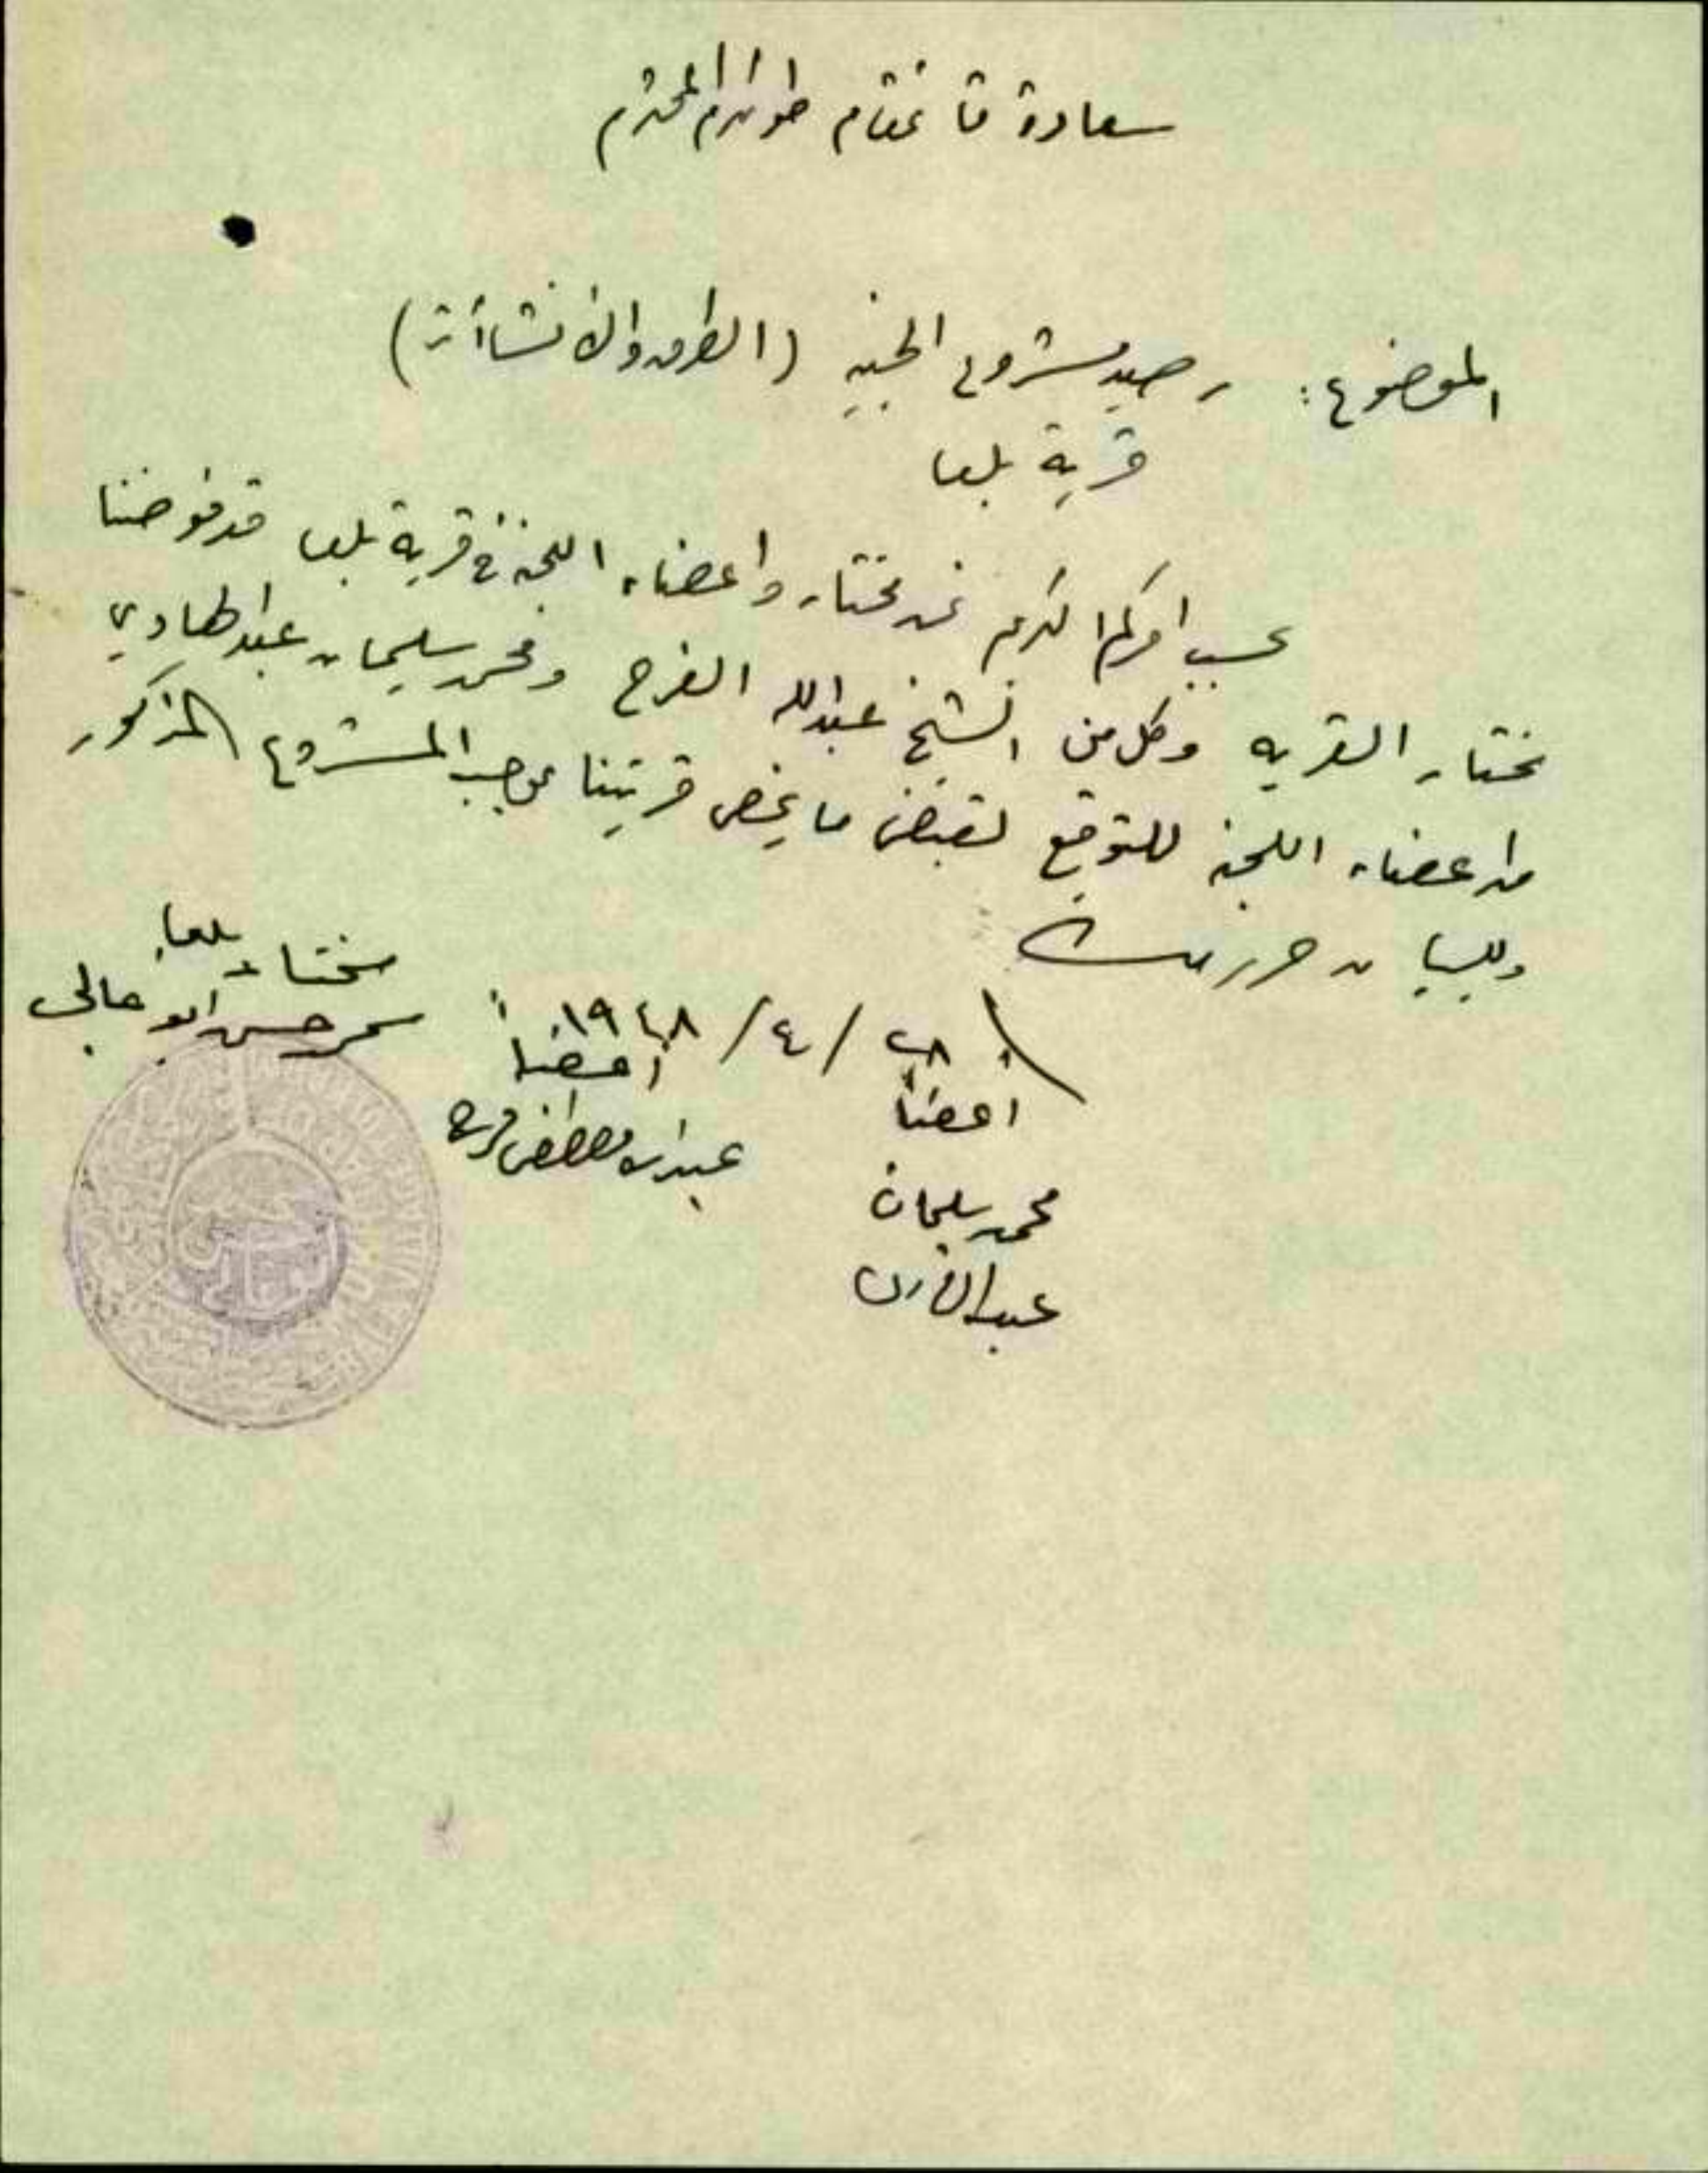 سعادة قائمقام طولكرم المحترم
الموضوع: رصيد مشروع الجنيه (الطرق والانشاأت)
قرية بلعا
حسب امركم الكريم نحن مختار واعضاء اللجنة في قرية بلعا قد فوضنا
مختار القريه وكل من الشيخ عبدالله الفرح ومحمد سليمان عبد الهادي
من اعضاء اللجنه للتوقيع لقبض ما يخص قريتنا بموجب المشروع المذكور
وللبيان حرر
٢٨ / ٤ / ١٩٤٨
مختار بلعا
حسن ابو
اعضا
عبدالله مصطفى فرح
اعضا
محمد سليمان